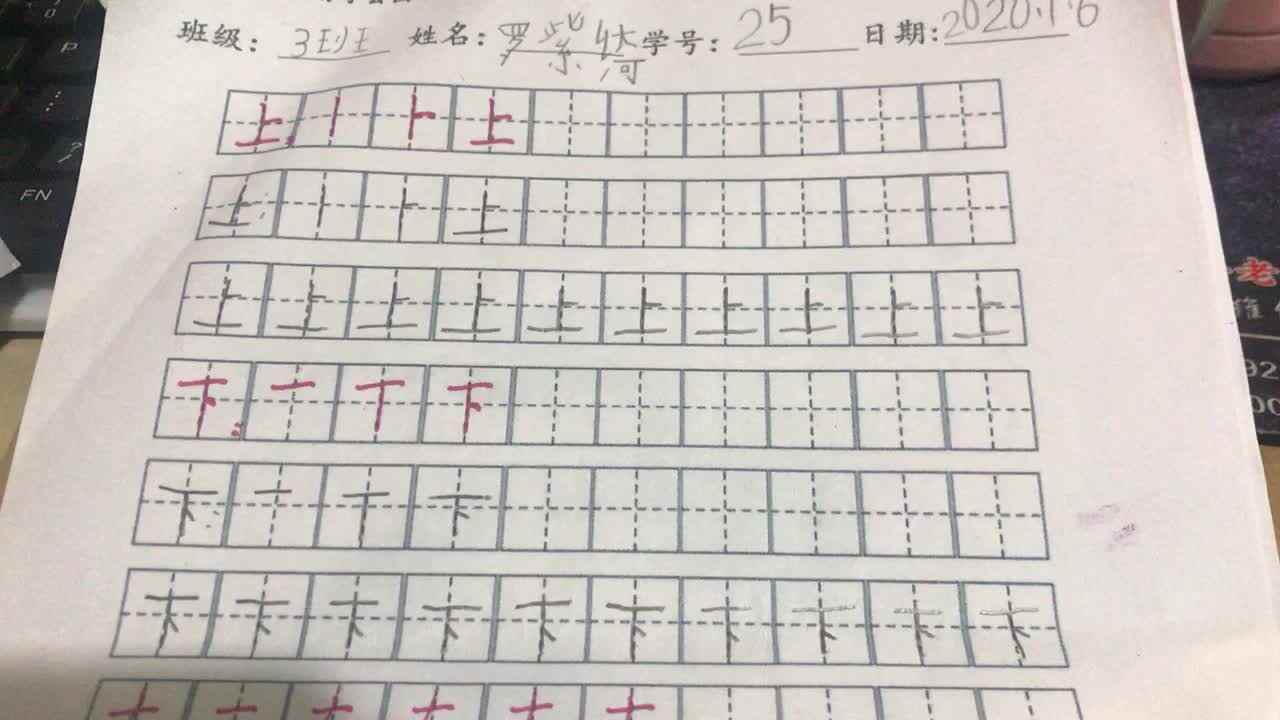 班级: 3班 姓名: 罗紫 学号: 25 日期: 2020.1.6
上: 丨 ⺊ 上
上: 丨 ⺊ 上
上 上 上 上 上 上 上 上 上 上
下: 一 丅 下
下: 一 丅 下
下 下 下 下 下 下 下 下 下 下
P
?
FN
老
92
00